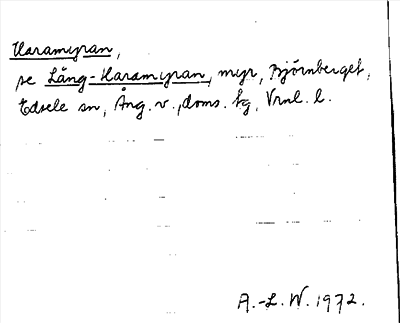 Haramyran,
se Lång-Haramyran, myr, Björnberget,
Edsele sn, Ång. v., doms. tg, Vrnl. l.
A.-L. W. 1972.